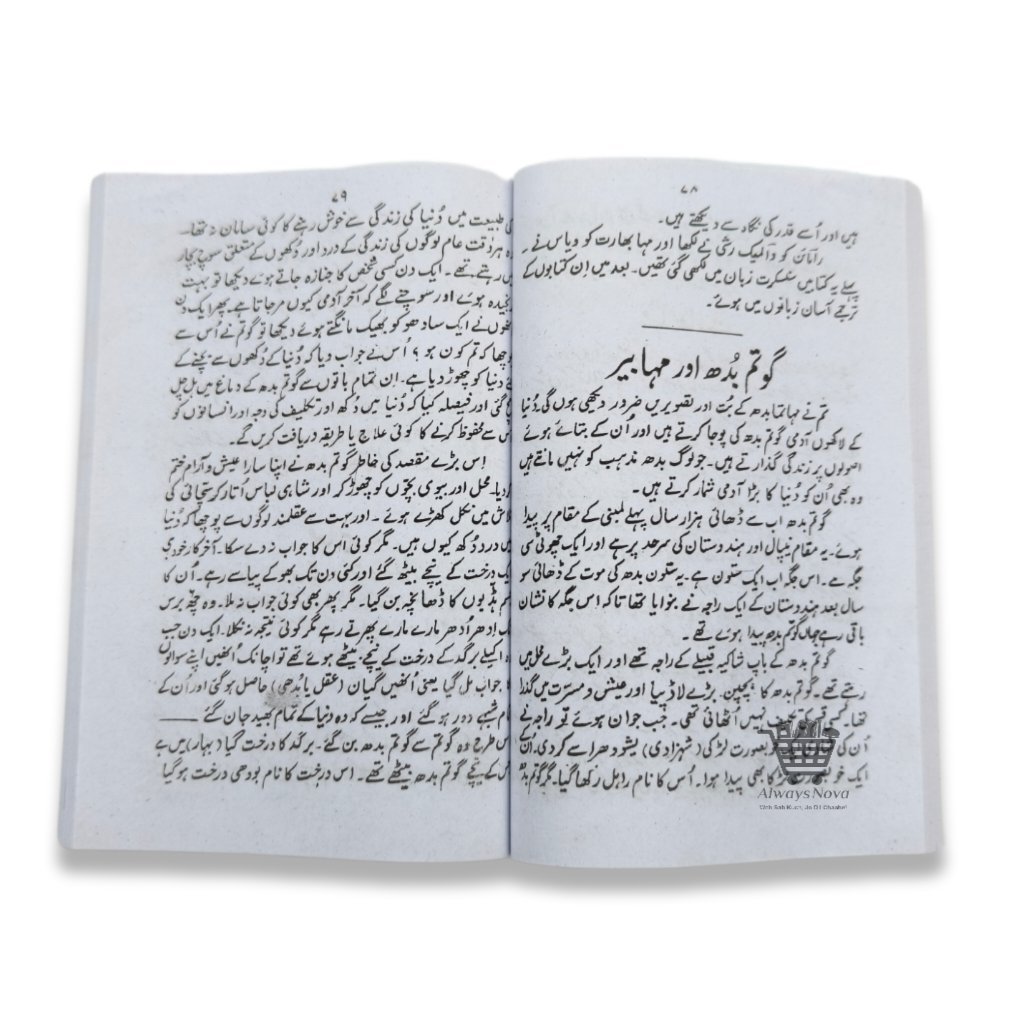 ۷۸
ہیں اور اُسے قدر کی نگاہ سے دیکھتے ہیں۔
رامائن کو والمیک رشی نے لکھا اور مہا بھارت کو ویاس نے ۔
پہلے یہ کتابیں سنسکرت زبان میں لکھی گئی تھیں۔ بعد میں اِن کتابوں کے
ترجمے آسان زبانوں میں ہوئے۔
گوتم بُدھ اور مہابیر
تم نے مہاتما بدھ کے بُت اور تصویریں ضرور دیکھی ہوں گی۔ دُنیا
کے لاکھوں آدمی گوتم بدھ کی پوجا کرتے ہیں اور اُن کے بتائے ہوئے
اصولوں پر زندگی گذارتے ہیں۔ جو لوگ بدھ مذہب کو نہیں مانتے ہیں
وہ بھی اُن کو دُنیا کا بڑا آدمی شمار کرتے ہیں ۔
گوتم بدھ اب سے ڈھائی ہزار سال پہلے لمبنی کے مقام پر پیدا
ہوئے۔ یہ مقام نیپال اور ہندوستان کی سرحد پر ہے اور ایک چھوٹی سی
جگہ ہے۔ اس جگہ اب ایک ستون ہے۔ یہ ستون بدھ کی موت کے ڈھائی سو
سال بعد ہندوستان کے ایک راجہ نے بنوایا تھا تاکہ اِس جگہ کا نشان
باقی رہے جہاں گوتم بدھ پیدا ہوئے تھے ۔
گوتم بدھ کے باپ شاکیہ قبیلے کے راجہ تھے اور ایک بڑے محل میں
رہتے تھے۔ گوتم بدھ کا بچپن بڑے لاڈ پیا اور عیش و مسرّت میں گذرا
تھا۔ کسی قسم کی تکلیف نہیں اُٹھائی تھی۔ جب جوان ہوئے تو راجہ نے
اُن کی شادی ایک خوبصورت لڑکی (شہزادی) یشودھرا سے کردی۔ اُن کے
ایک خوبصورت لڑکا بھی پیدا ہوا۔ اُس کا نام راہل رکھا گیا۔ مگر گوتم بدھ
Always Nova
Woh Sab Kuch, Jo Dil Chaahe!
۷۹
کی طبیعت میں دُنیا کی زندگی سے خوش رہنے کا کوئی سامان نہ تھا۔
ہر وقت عام لوگوں کی زندگی کے درد اور دُکھوں کے متعلق سوچ بچار
میں رہتے تھے۔ ایک دن کسی شخص کا جنازہ جاتے ہوئے دیکھا تو بہت
رنجیدہ ہوئے اور سوچنے لگے کہ آخر آدمی کیوں مرجاتا ہے۔ پھر ایک دن
انھوں نے ایک سادھو کو بھیک مانگتے ہوئے دیکھا تو گوتم نے اُس سے
پوچھا کہ تم کون ہو ؟ اُس نے جواب دیا کہ دُنیا کے دُکھوں سے بچنے کے
لئے دنیا کو چھوڑ دیا ہے۔ ان تمام باتوں سے گوتم بدھ کے دماغ میں ہل چل
مچ گئی اور فیصلہ کیا کہ دُنیا میں دُکھ اور تکلیف کی وجہ اور انسانوں کو
اس سے محفوظ کرنے کا کوئی علاج یا طریقہ دریافت کریں گے۔
اِس بڑے مقصد کی خاطر گوتم بدھ نے اپنا سارا عیش و آرام ختم
کردیا۔ محل اور بیوی بچّوں کو چھوڑ کر اور شاہی لباس اُتار کر سچائی کی
تلاش میں نکل کھڑے ہوئے ۔ اور بہت سے عقلمند لوگوں سے پوچھا کہ دُنیا
میں درد دُکھ کیوں ہیں۔ مگر کوئی اس کا جواب نہ دے سکا۔ آخر کار خود ہی
ایک درخت کے نیچے بیٹھ گئے اور کئی دن تک بھوکے پیاسے رہے۔ اُن کا
جسم ہڈیوں کا ڈھانچہ بن گیا۔ مگر پھر بھی کوئی جواب نہ ملا۔ وہ چھ برس
تک اِدھر اُدھر مارے مارے پھرتے رہے مگر کوئی نتیجہ نہ نکلا۔ ایک دن جب
وہ اکیلے برگد کے درخت کے نیچے بیٹھے ہوئے تھے تو اچانک اُنھیں اپنے سوالوں
کا جواب مل گیا یعنی اُنھیں گیان (عقل یا بُدھی) حاصل ہوگئی اور اُن کے
تمام شبہے دور ہوگئے اور جیسے کہ وہ دنیا کے تمام بھید جان گئے
اس طرح وہ گوتم سے گوتم بدھ بن گئے۔ برگد کا درخت گیا (بہار) میں ہے
جس کے نیچے گوتم بدھ بیٹھے تھے۔ اس درخت کا نام بودھی درخت ہوگیا